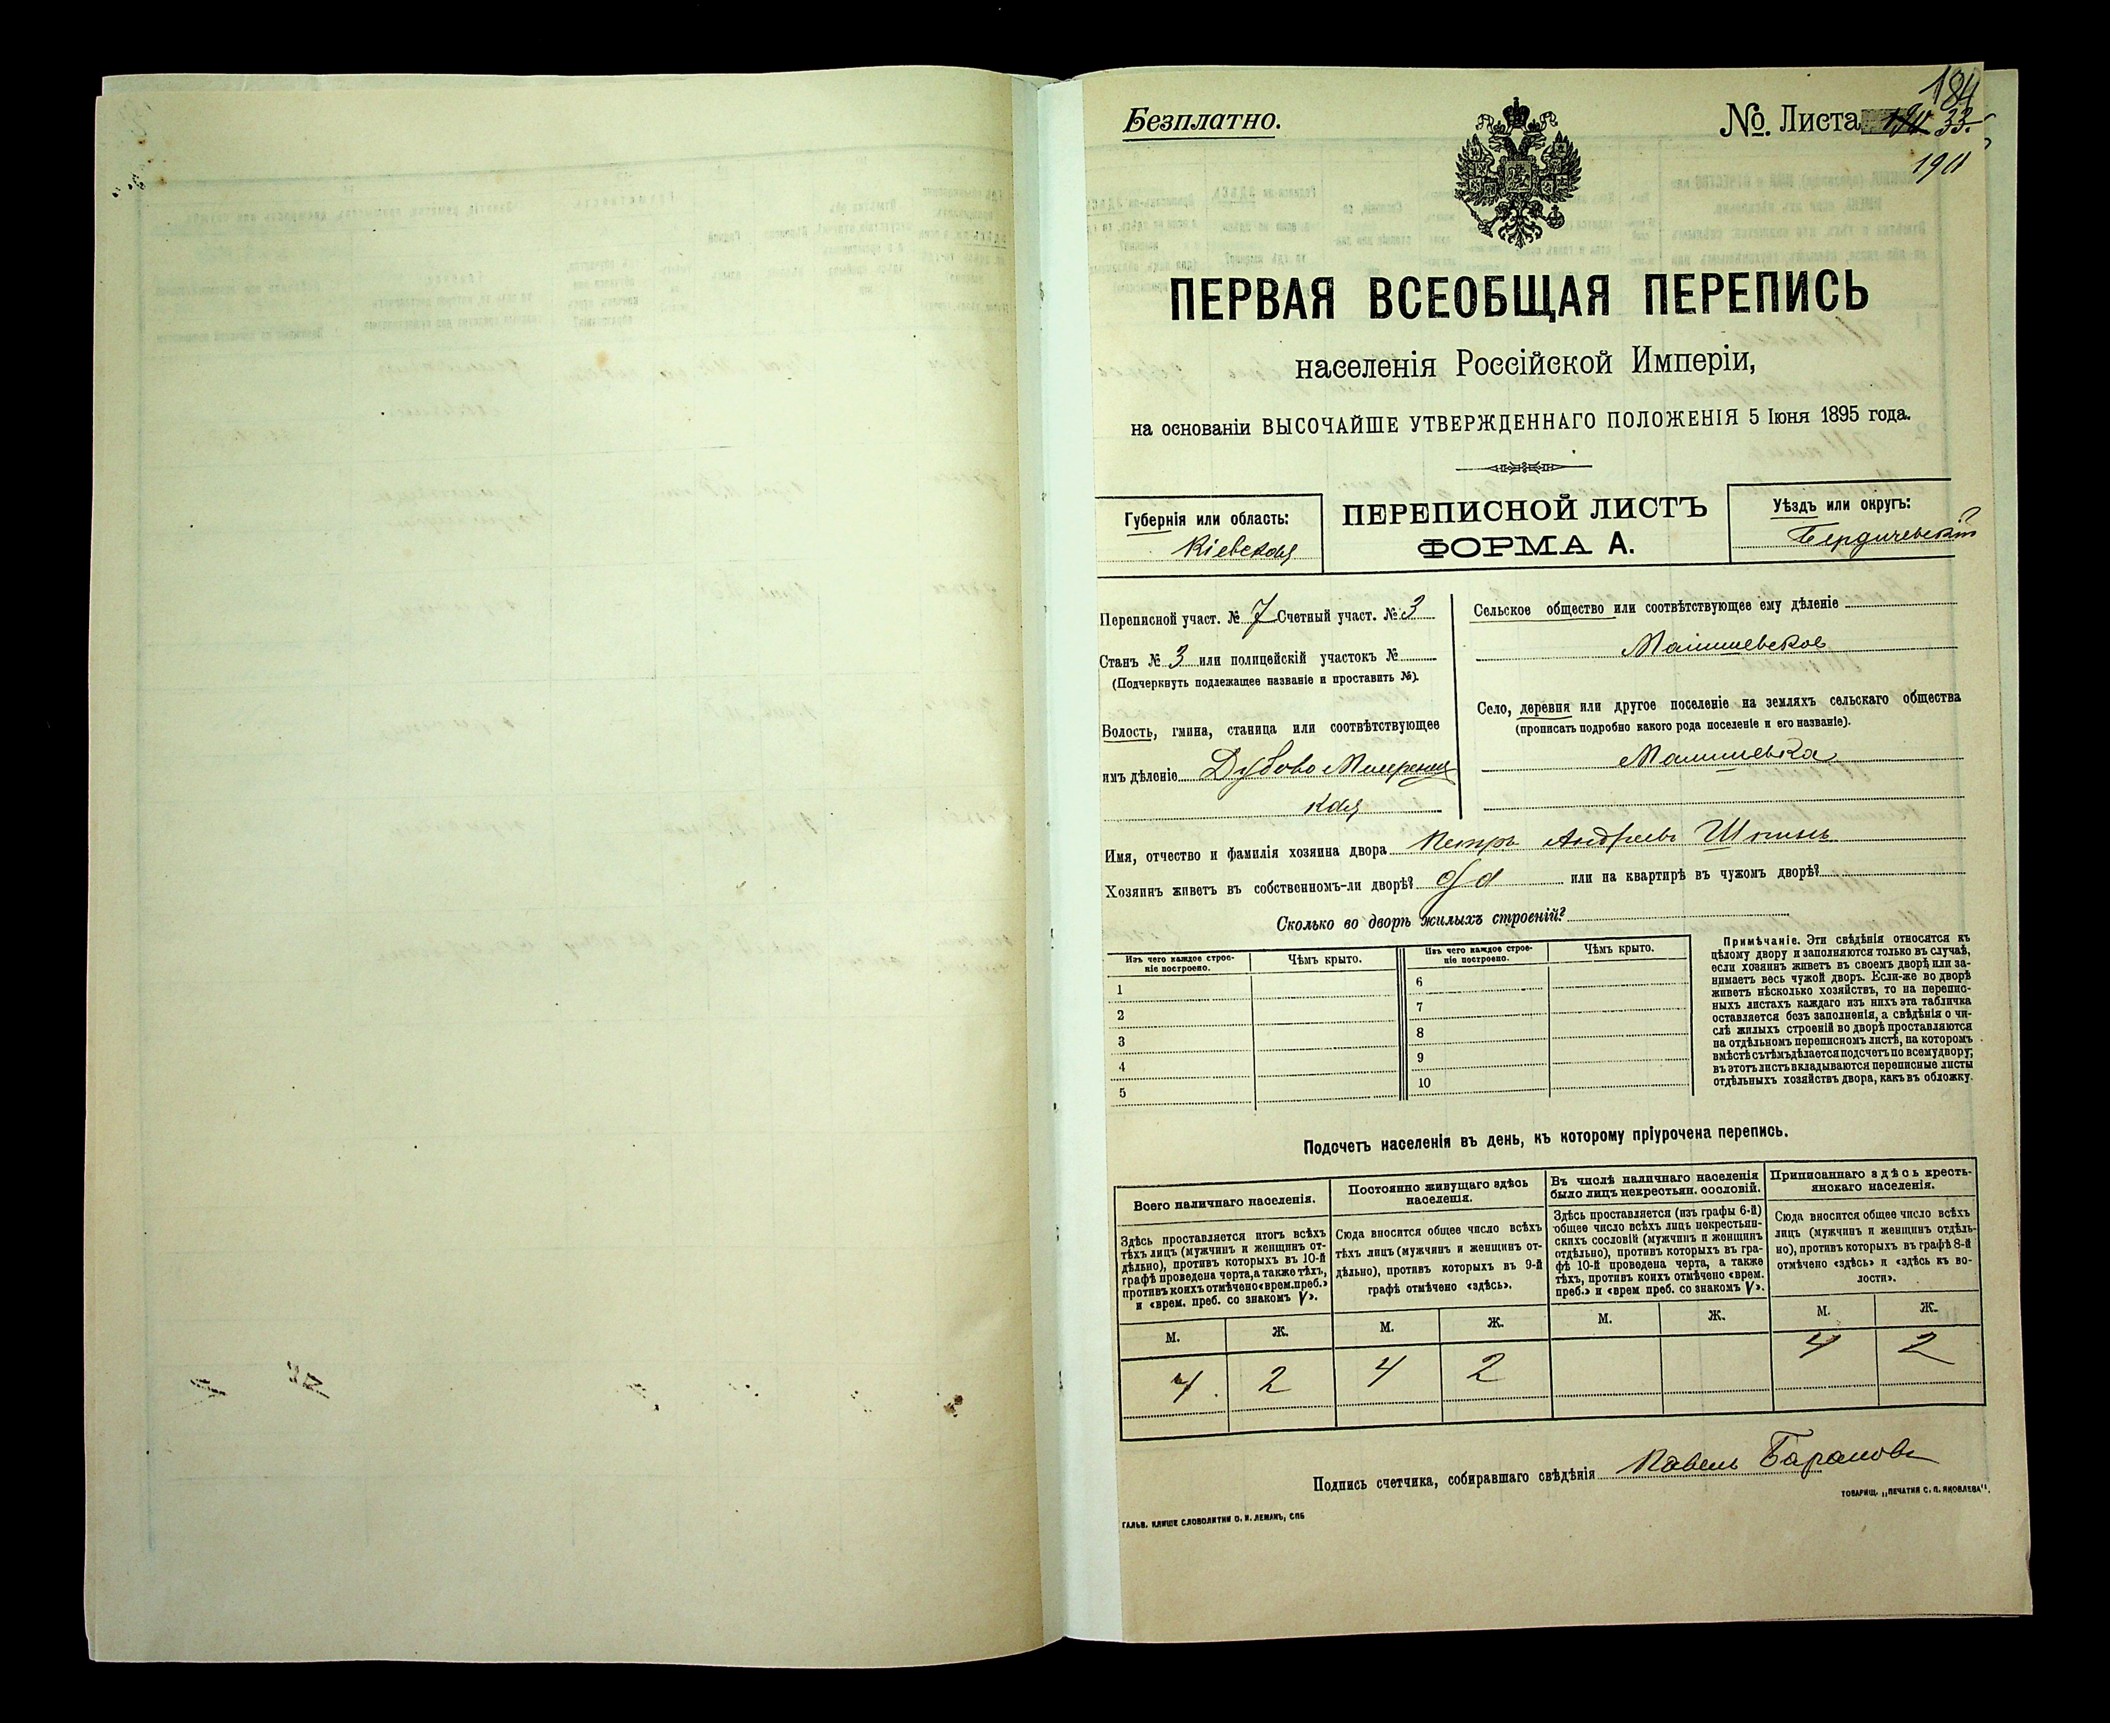 184
Безплатно.
№. Листа 33.
190
ПЕРВАЯ ВСЕОБЩАЯ ПЕРЕПИСЬ
населенія Россійской Имперіи,
на основаніи ВЫСОЧАЙШЕ УТВЕРЖДЕННАГО ПОЛОЖЕНІЯ 5 Іюня 1895 года.
Губернія или область:
Кіевская
ПЕРЕПИСНОЙ ЛИСТЪ
ФОРМА А.
Уѣздъ или округъ:
Бердичевскій
Переписной участ. № 7 Счетный участ. № 3
Станъ № 3 или полицейскій участокъ №
(Подчеркнуть подлежащее названіе и проставить №).
Волость, гмина, станица или соотвѣтствующее
имъ дѣленіе Дубово
кая
Сельское общество или соотвѣтствующее ему дѣленіе
Село, деревня или другое поселеніе на земляхъ сельскаго общества
(прописать подробно какого рода поселеніе и его названіе).
Имя, отчество и фамилія хозяина двора Петръ Андреевъ
Хозяинъ живетъ въ собственномъ-ли дворѣ? да или на квартирѣ въ чужомъ дворѣ?
Сколько во дворѣ жилыхъ строеній?
Изъ чего каждое строе-
ніе построено.
Чѣмъ крыто.
1
2
3
4
5
Изъ чего каждое строе-
ніе построено.
Чѣмъ крыто.
6
7
8
9
10
Примѣчаніе. Эти свѣдѣнія относятся къ
цѣлому двору и заполняются только въ случаѣ,
если хозяинъ живетъ въ своемъ дворѣ или за-
нимаетъ весь чужой дворъ. Если-же во дворѣ
живетъ нѣсколько хозяйствъ, то на перепис-
ныхъ листахъ каждаго изъ нихъ эта табличка
оставляется безъ заполненія, а свѣдѣнія о чи-
слѣ жилыхъ строеній во дворѣ проставляются
на отдѣльномъ переписномъ листѣ, на которомъ
вмѣстѣ съ тѣмъ дѣлается подсчетъ по всему двору;
въ этотъ листъ вкладываются переписные листы
отдѣльныхъ хозяйствъ двора, какъ въ обложку.
Подсчетъ населенія въ день, къ которому пріурочена перепись.
Всего наличнаго населенія.
Здѣсь проставляется итогъ всѣхъ
тѣхъ лицъ (мужчинъ и женщинъ от-
дѣльно), противъ которыхъ въ 10-й
графѣ проведена черта, а также тѣхъ,
противъ коихъ отмѣчено «врем. преб.»
и «врем. преб. со знакомъ V».
М. Ж.
4 2
Постоянно живущаго здѣсь
населенія.
Сюда вносится общее число всѣхъ
тѣхъ лицъ (мужчинъ и женщинъ от-
дѣльно), противъ которыхъ въ 9-й
графѣ отмѣчено «здѣсь».
М. Ж.
4 2
Въ числѣ наличнаго населенія
было лицъ некрестьян. сословій.
Здѣсь проставляется (изъ графы 6-й)
общее число всѣхъ лицъ некрестьян-
скихъ сословій (мужчинъ и женщинъ
отдѣльно), противъ которыхъ въ гра-
фѣ 10-й проведена черта, а также
тѣхъ, противъ коихъ отмѣчено «врем.
преб.» и «врем преб. со знакомъ V».
М. Ж.
Приписаннаго здѣсь кресть-
янскаго населенія.
Сюда вносится общее число всѣхъ
лицъ (мужчинъ и женщинъ отдѣль-
но), противъ которыхъ въ графѣ 8-й
отмѣчено «здѣсь» и «здѣсь къ во-
лости».
М. Ж.
4 2
Подпись счетчика, собиравшаго свѣдѣнія Павелъ Барановъ
ТОВАРИЩ. „ПЕЧАТНЯ С. П. ЯКОВЛЕВА".
ГАЛЬВ. КЛИШЕ СЛОВОЛИТНИ О. И. ЛЕМАНЪ, СПБ